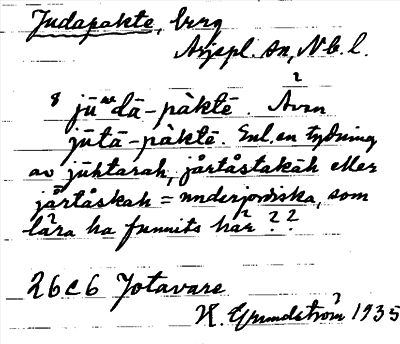 Judapakte, berg
Arjepl. sn, Nb. l.
jūᵆdā-pàktē. Även
jūtā-pàktē. Enl. en tydning
av jūhtarah, jårtåstakāh eller
jårtåskah = underjordiska, som
lära ha funnits här??
26c6 Jotavare
H. Grundström 1935